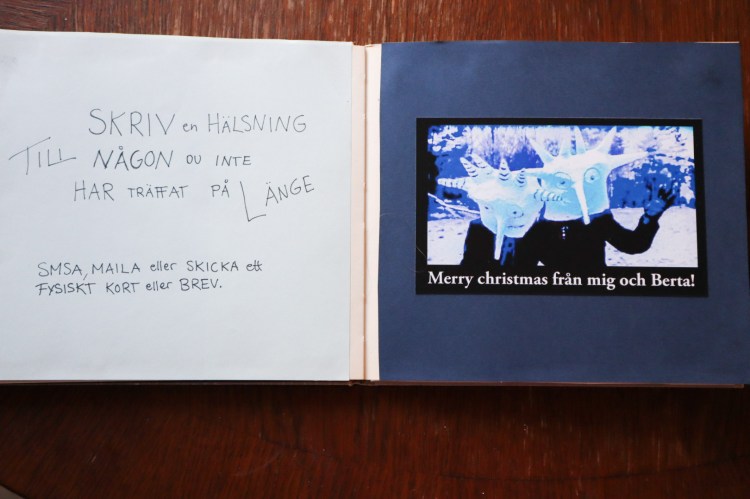 SKRIV en HÄLSNING
TILL NÅGON DU INTE
HAR TRÄFFAT PÅ LÄNGE
SMSA, MAILA eller SKICKA ett
FYSISKT KORT eller BREV.
Merry christmas från mig och Berta!